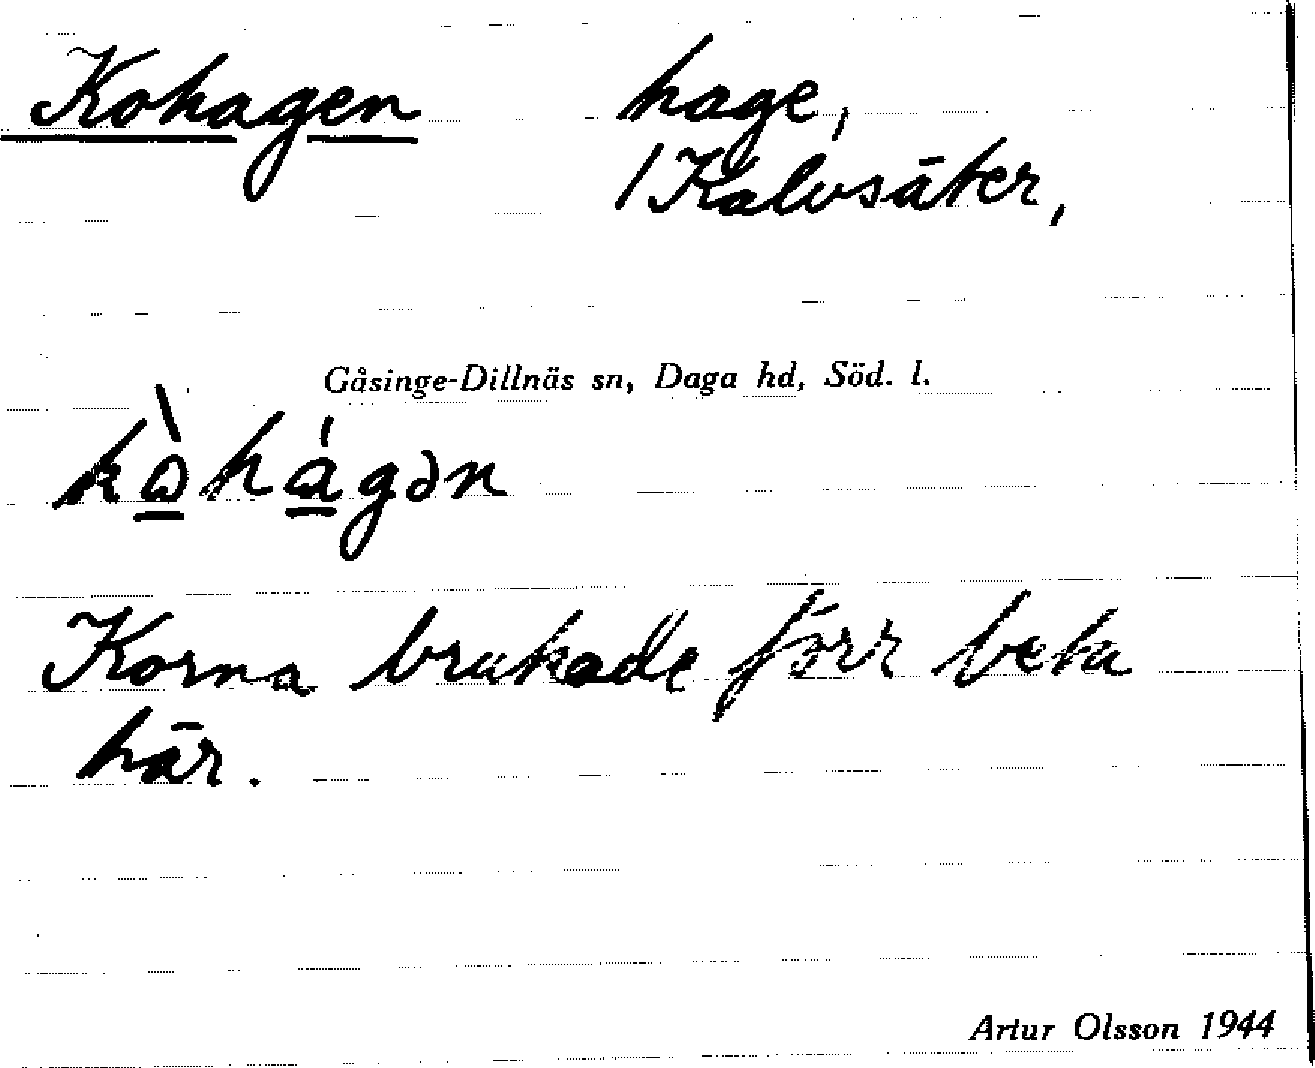 Kohagen hage,
/Kalvsäter,
Gåsinge-Dillnäs sn, Daga hd, Söd. l.
kòhágən
Korna brukade förr beta
här.
Artur Olsson 1944